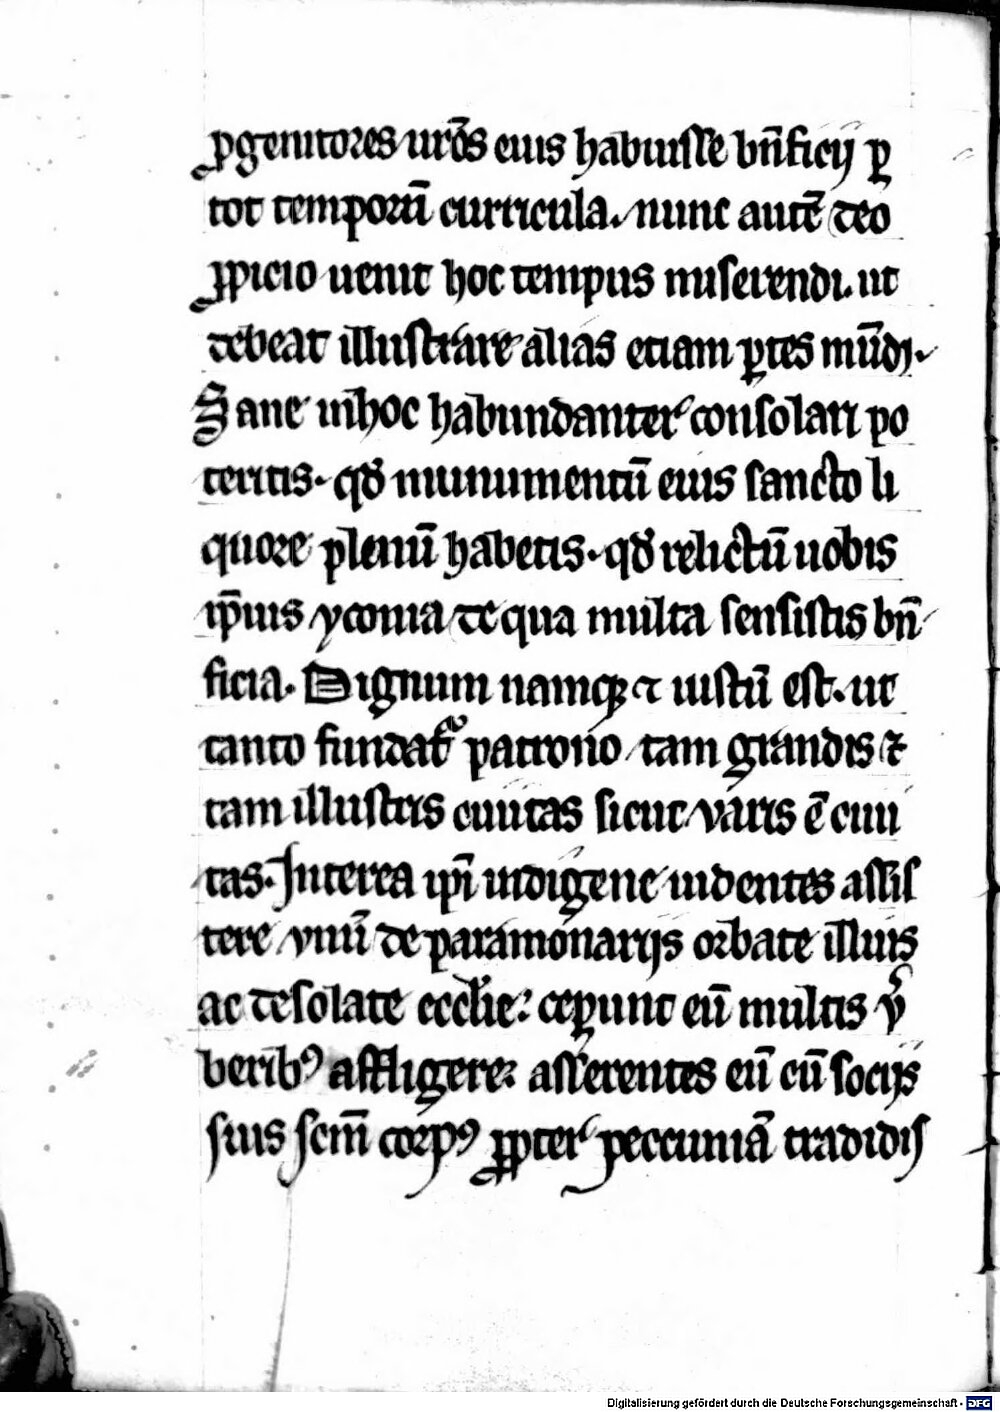 ꝓgenitores ur̄os eius habuisse bn̄ficij ꝑ
tot temporū curricula. nunc autē deo
ꝓpicio uenit hoc tempus miserendi. ut
debeat illustrare alias etiam ꝑtes mūdi.
Sane inhoc habundanter consolari po
teritis. qd̓ munumentū eius sancto li
quore plenū habetis. qd̓ relictū uobis
ip̄ius yconia de qua multa sensistis bn̄
ficia. Dignum namqꝫ ⁊ iustū est. ut
tanto fundat᷒ patrono tam grandis ⁊
tam illustris ciuitas sicut varis ē ciui
tas. Interea ip̄i indigene uidentes assis
tere vnū de paramonarijs orbate illius
ac desolate eccl̓ie: ceꝑunt eū multis v̓
beribꝰ affligere: asserentes eū cū socijs
suis scm̄ corpꝰ ꝓpter peccuniā tradidis
Digitalisierung gefördert durch die Deutsche Forschungsgemeinschaft - DFG